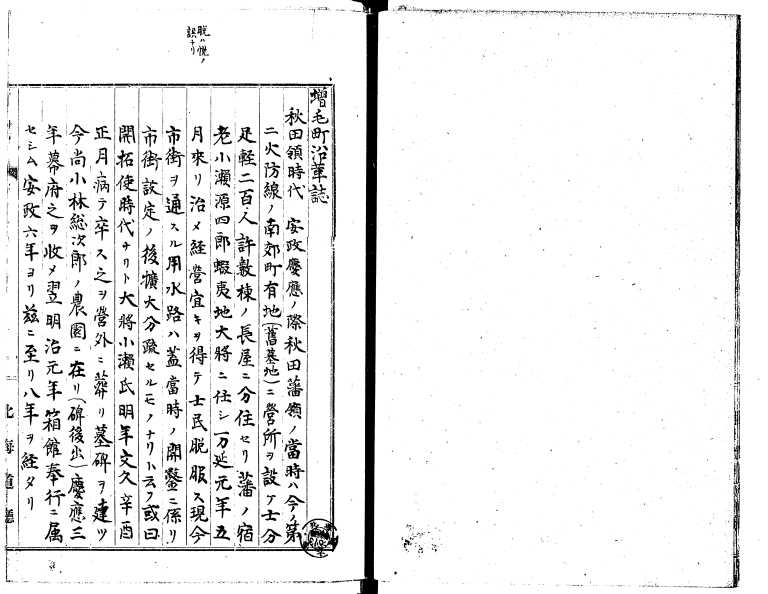 脱ハ悦ノ
誤ナリ
増毛町沿革誌
秋田領時代 安政慶應ノ際秋田藩領ノ當時ハ今ノ第
二火防線ノ南郊町有地(舊墓地)ニ營所ヲ設ケ士分
足軽二百人許数棟ノ長屋ニ分住セリ藩ノ宿
老小瀬源四郎蝦夷地大將ニ任シ万延元年五
月來リ治メ経營宜キヲ得テ士民脱服ス現今
市街ヲ通スル用水路ハ蓋當時ノ開鑿ニ係リ
市街設定ノ後擴大分疏セルモノナリト云フ或曰
開拓使時代ナリト大將小瀬氏明年文久辛酉
正月病テ卒ス之ヲ營外ニ葬リ墓碑ヲ建ツ
今尚小林総次郎ノ農園ニ在リ(碑後出)慶應三
年幕府之ヲ收メ翌明治元年箱館奉行ニ属
セシム安政六年ヨリ茲ニ至リ八年ヲ経タリ
北海道廳